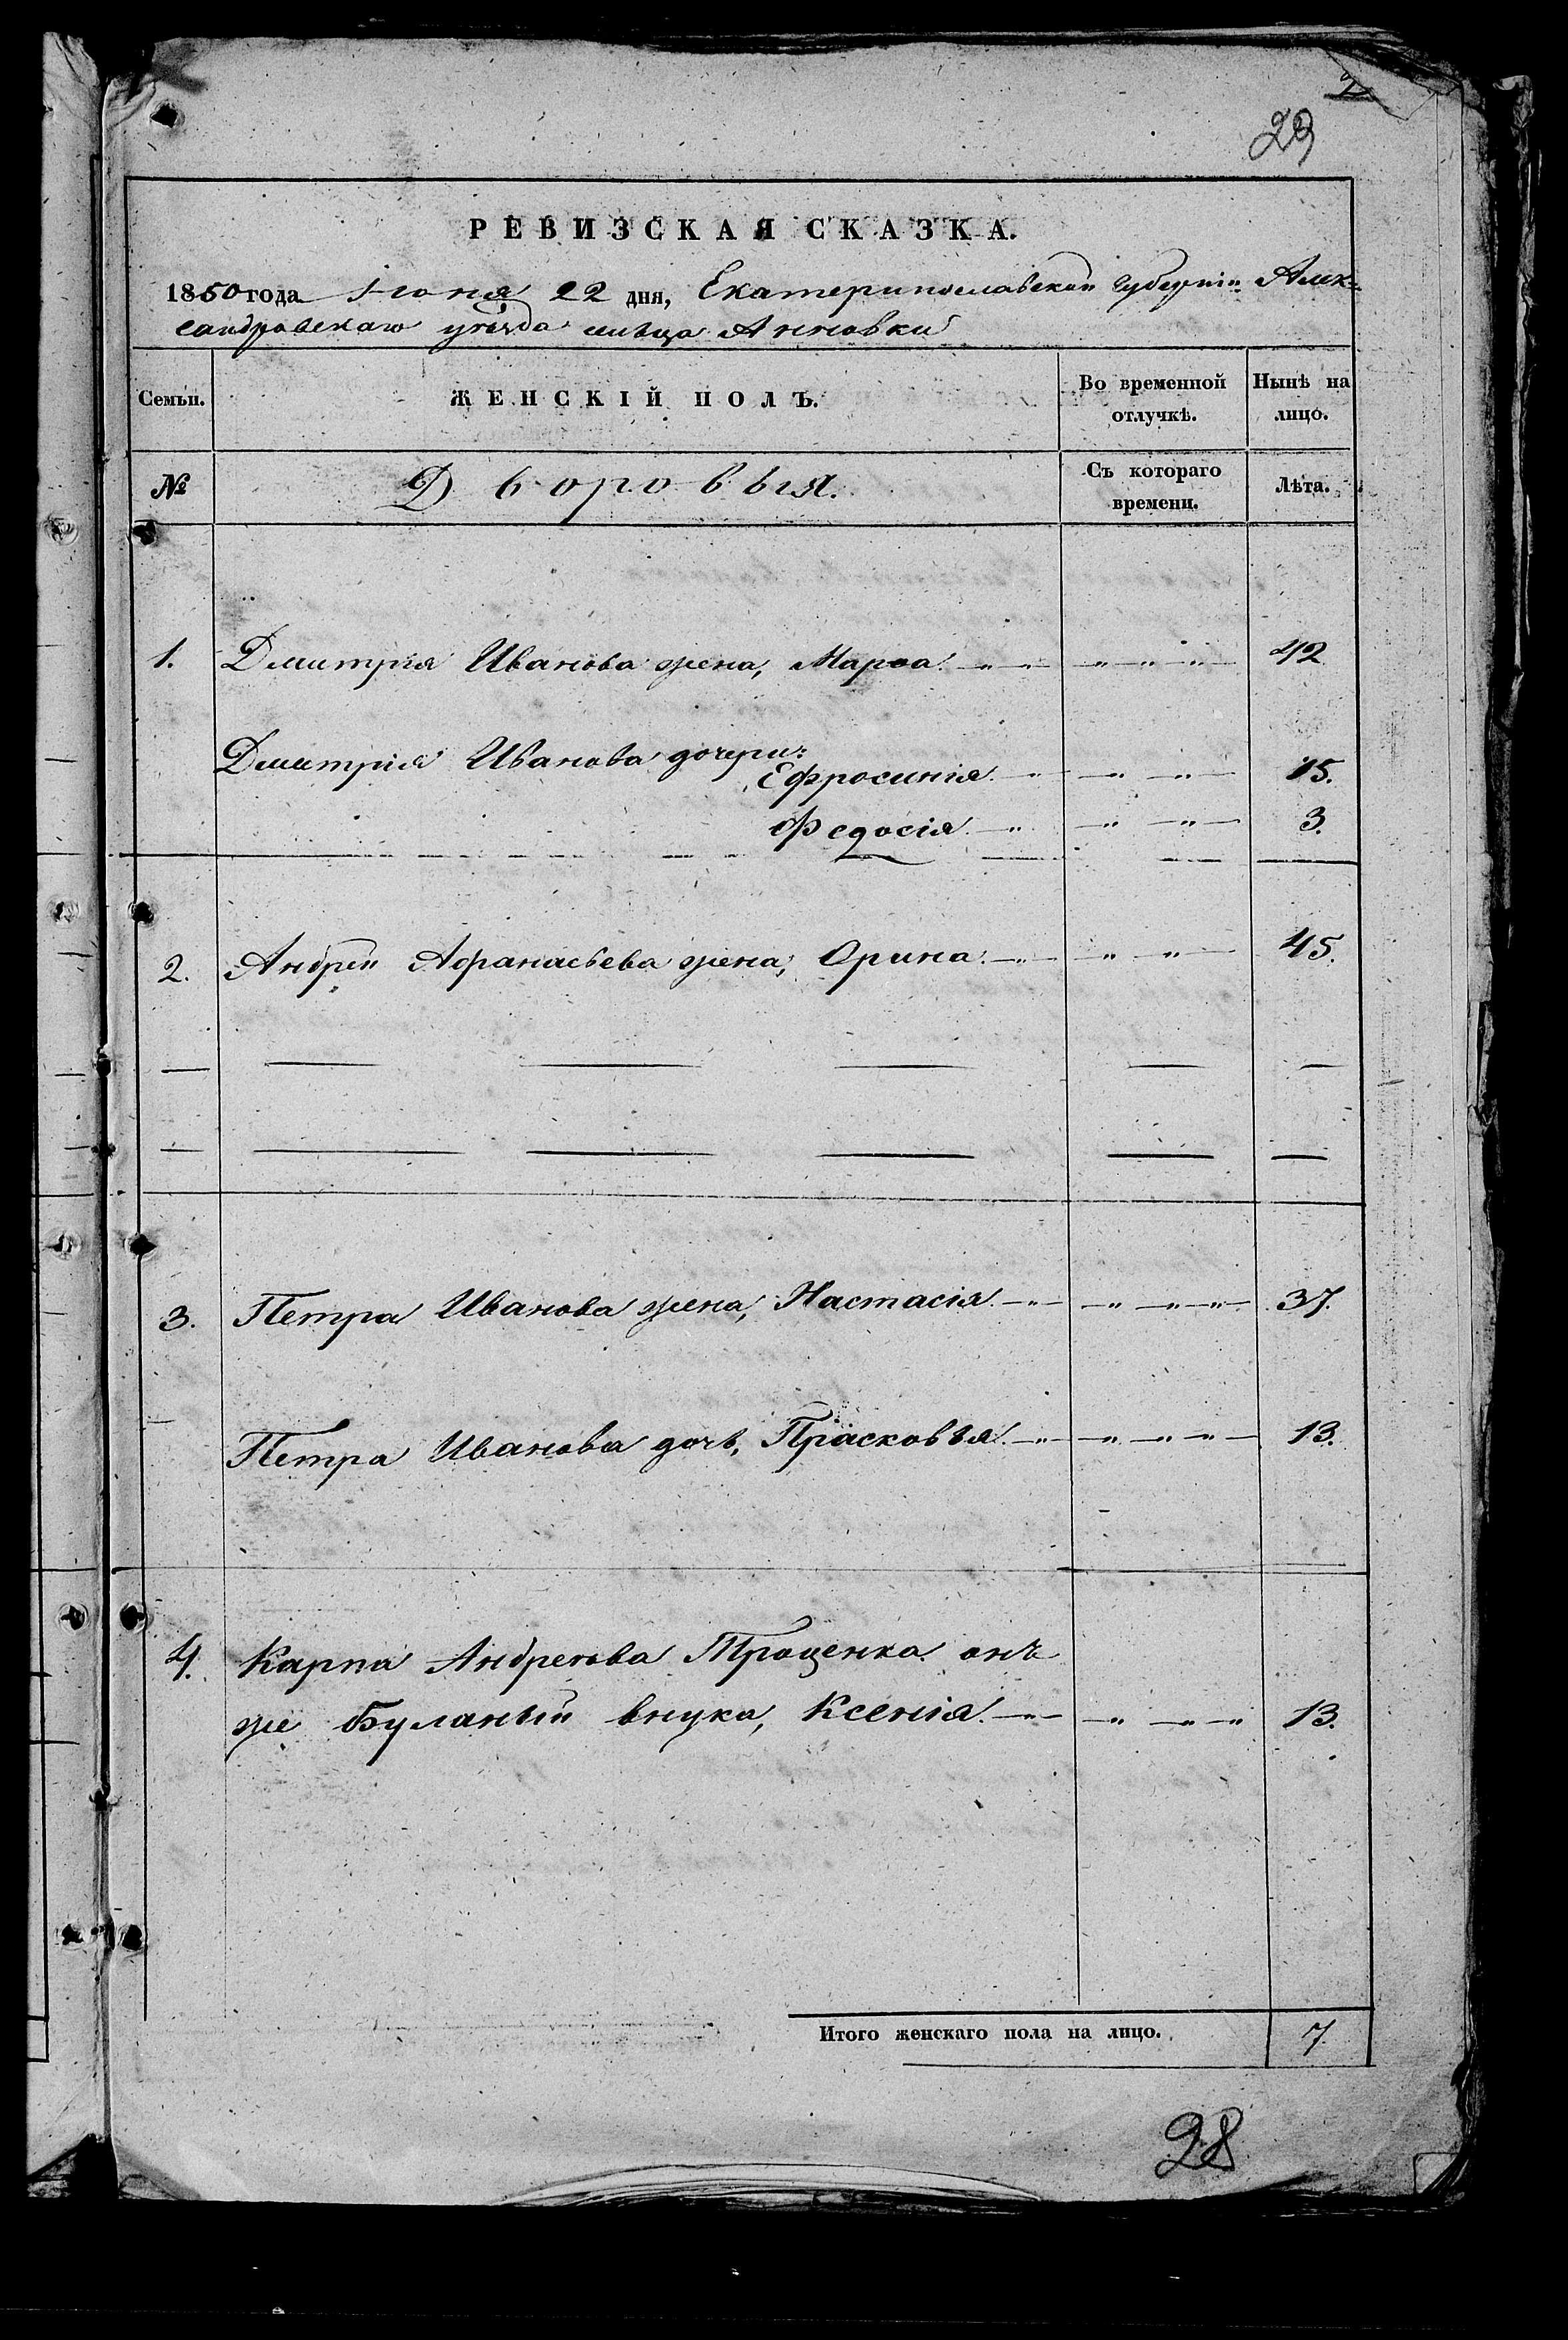 2
29
РЕВИЗСКАЯ СКАЗКА.
1850 года Іюня 22 дня, Екатеринославской Губерніи Алек-
сандровскаго уѣзда сельца Анновки
Семьи. ЖЕНСКІЙ ПОЛЪ. Во временной отлучкѣ. Нынѣ на лицо.
№ Дворовыя. Съ котораго времени. Лѣта.
1. Дмитрія Иванова жена, Марѳа 42
Дмитрія Иванова дочери:
Ефросинія 15.
Федосія 3.
2. Андрей Афанасьева жена, Орина 45.
3. Петра Иванова жена, Настасія 37.
Петра Иванова дочь, Прасковья 13.
4. Карпа Андреева Троценка онъ
же Буланый внука, Ксенія 13.
Итого женскаго пола на лицо. 7
28